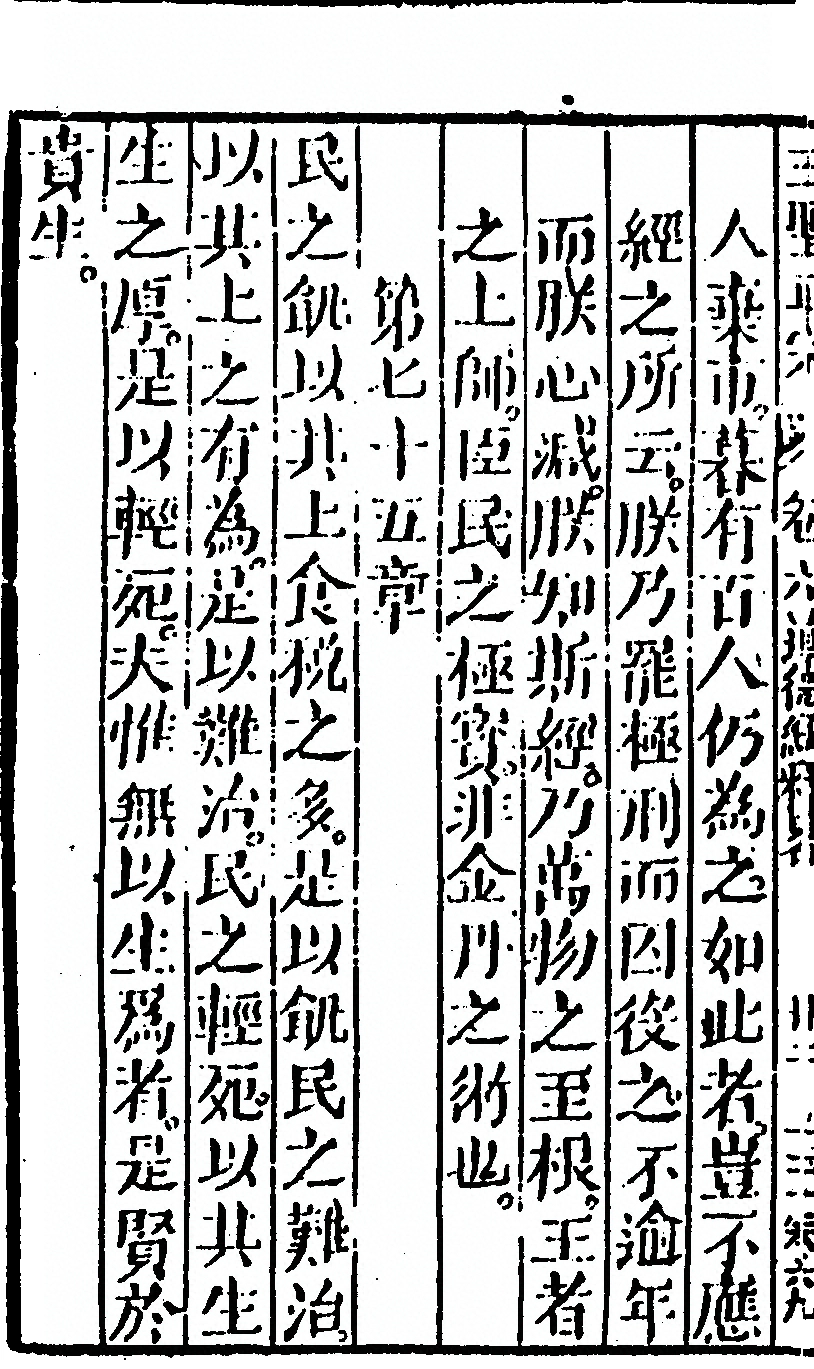 人棄市。暮有百人仍為之。如此者。豈不應
經之所云。朕乃罷極刑而囚役之。不逾年
而朕心減。朕知斯經。乃萬物之至根。王者
之上師。臣民之極寶。非金丹之術也。
第七十五章
民之飢以其上食稅之多。是以飢民之難治。
以其上之有為。是以難治。民之輕死。以其生
生之厚。是以輕死。夫惟無以生為者。是賢於
貴生。